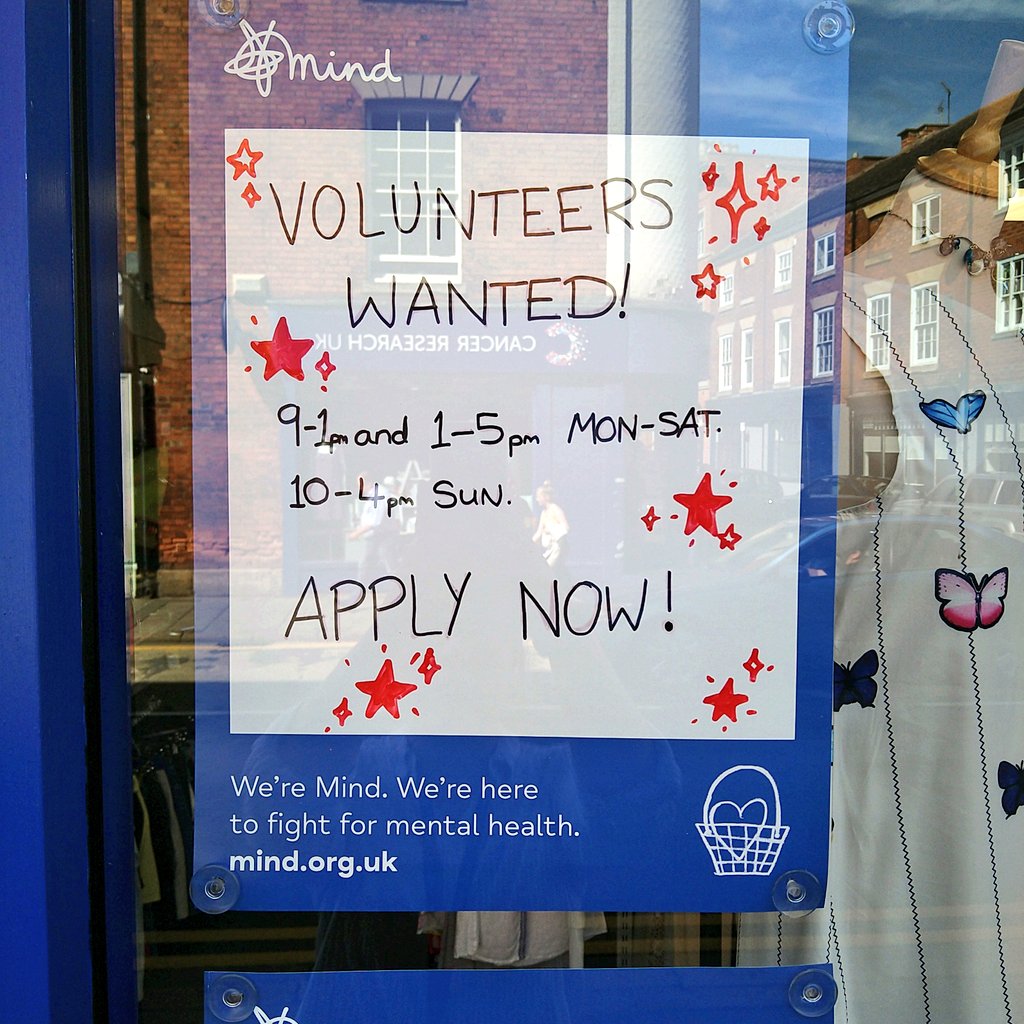 mind
VOLUNTEERS
WANTED!
CANCER RESEARCH UK
9-1pm and 1-5pm MON-SAT.
10-4pm SUN.
APPLY NOW!
We're Mind. We're here
to fight for mental health.
mind.org.uk